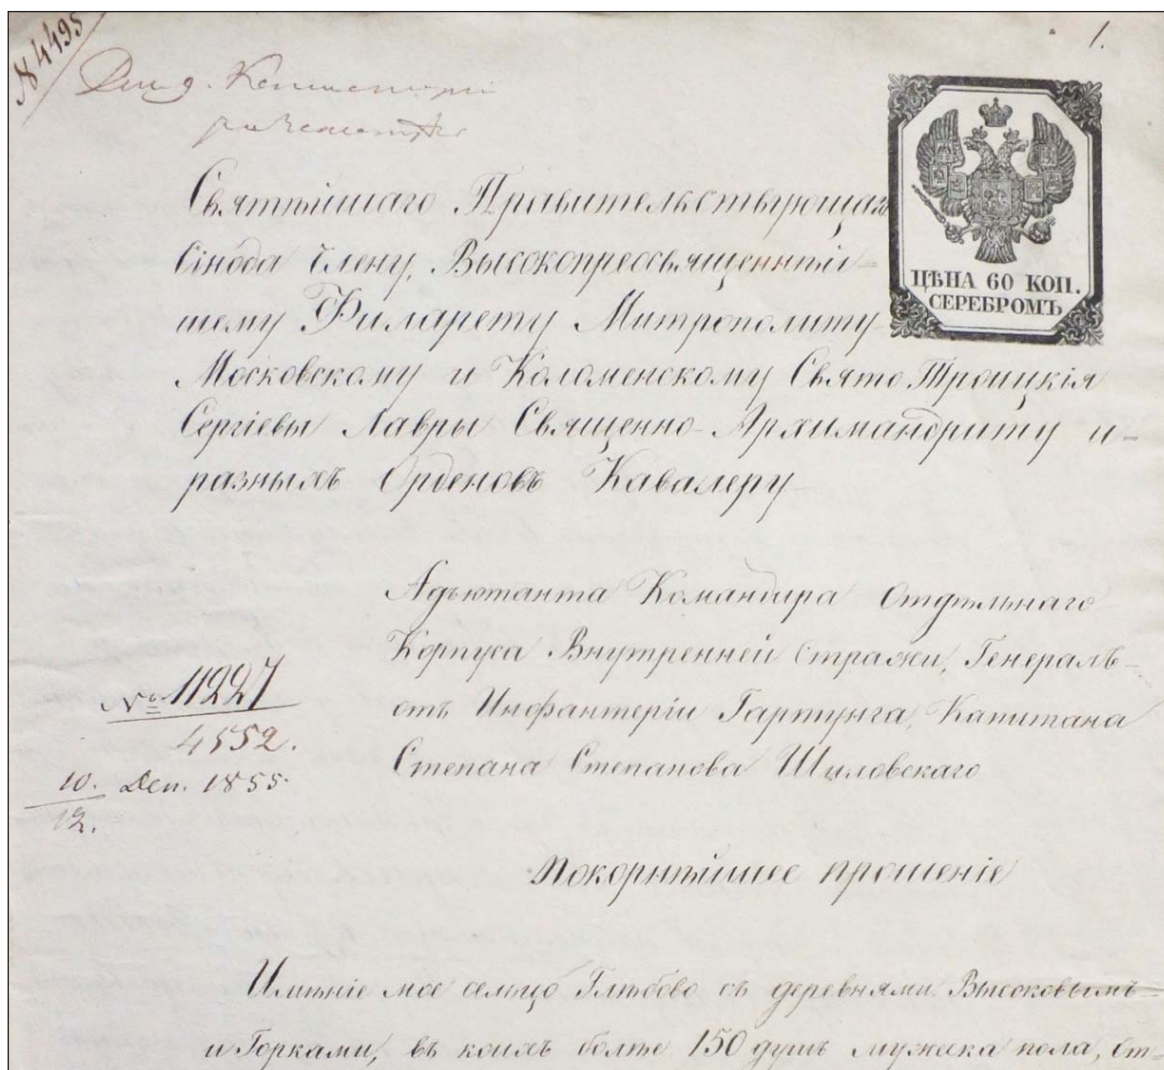 № 4495
1.
ЦѢНА 60 КОП.
СЕРЕБРОМЪ
Святѣйшаго Правительствующаго
Сѵнода Члену, Высокопреосвященнѣй-
шему Филарету Митрополиту
Московскому и Коломенскому Свято Троицкія
Сергіевы Лавры Священно-Архимандриту и
разныхъ Орденовъ Кавалеру
Адъютанта Командира Отдѣльнаго
Корпуса Внутренней стражи, Генералъ-
отъ Инфантеріи Гартунга, Капитана
Степана Степанова Шиловскаго
№ 11227
4552.
10. Дек. 1855.
12.
Покорнѣйшее прошеніе
Имѣніе мое сельцо Глѣбово съ деревнями Высоковымъ
и Горками, въ коихъ болѣе 150 душъ мужеска пола, от-